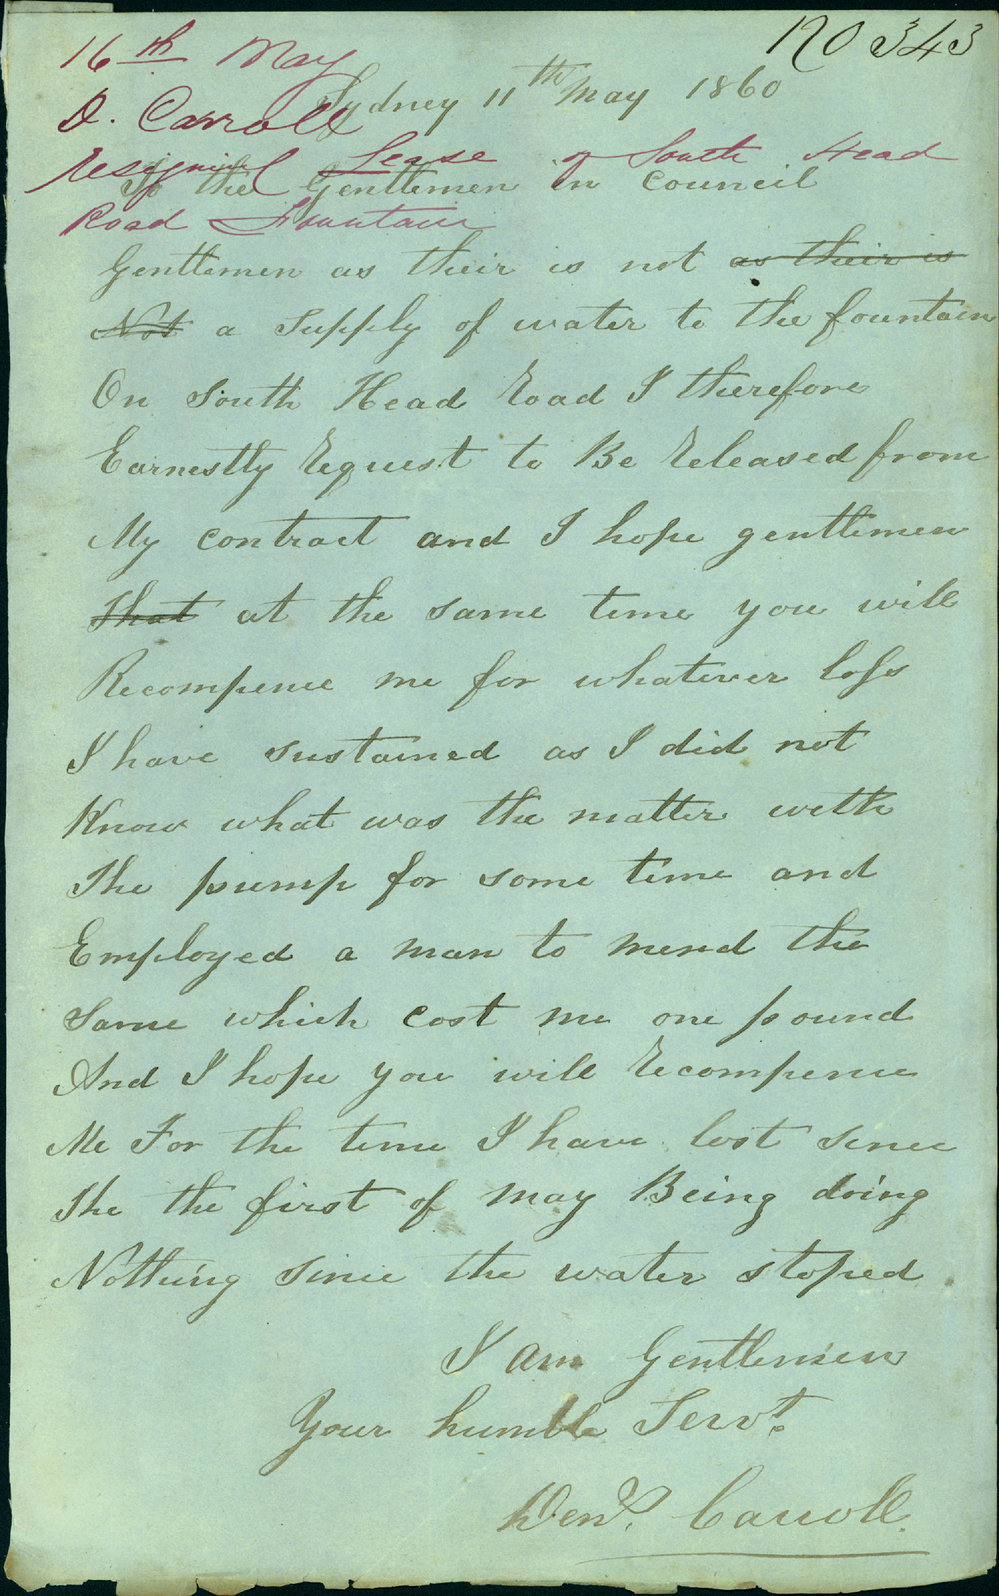 No 343
16th May
D. Carroll
resigning Lease of South Head
Road Fountain
Sydney 11th May 1860
To the Gentlemen in Council
Gentlemen as their is not as their is
Not a supply of water to the fountain
On South Head road I therefore
Earnestly request to Be released from
My contract and I hope gentlemen
That at the same time you will
Recompence me for whatever loss
I have sustained as I did not
Know what was the matter with
The pump for some time and
Employed a man to mend the
Same which cost me one pound
And I hope you will recompence
Me For the time I have lost since
The the first of may Being doing
Nothing since the water stoped
I am Gentlemen
Your humble Servt.
Dens. Carroll.